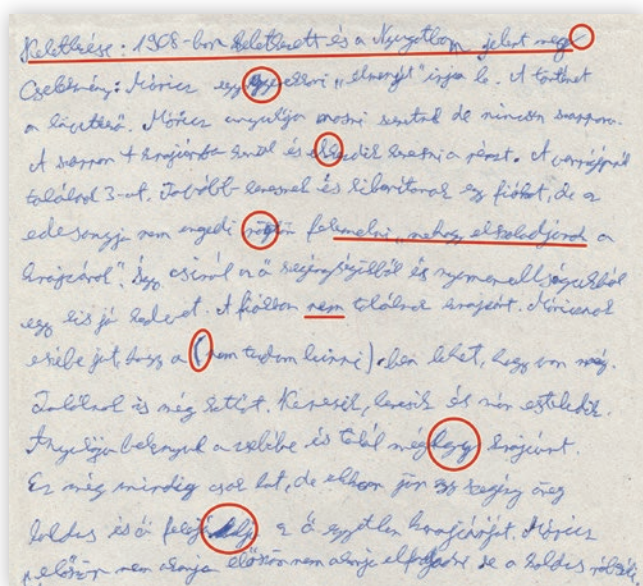 Keletkezése: 1908-ban keletkezett és a Nyugatban jelent meg
Cselekmény: Móricz egy gyerekkori „élményét” írja le. A történet
a következő. Móricz anyukája mosni szeretne de nincsen szappan.
A szappan 7 krajcárba kerül és elkezdik keresni a pénzt. A varrógépnél
találnak 3-at. Tovább keresnek és kiborítanak egy fiókot, de a
édesanyja nem engedi rögtön felemelni „nehogy elszaladjanak a
krajcárok”. Így csinál a ő szegénységükből és nyomorultságukból
egy kis jó kedvet. A fiókban nem találnak krajcárt. Móricznak
eszébe jut, hogy a (nem tudom kiírni)-ben lehet, hogy van még.
Találnak is még kettőt. Keresik, keresik és már esteledik.
Anyukája benyúl a zsebébe és talál még egy krajcárt.
Ez még mindig csak hat, de ekkor jön egy szegény öreg
koldus és ő felajánlja az ő egyetlen krajcárját. Móricz
először nem akarja elfogadni, de a koldus